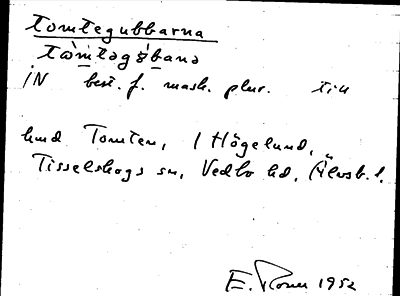 tomtegubbarna
tomtəgubana
IN best. f. mask. plur. till
hmd Tomten, 1 Högelund,
Tisselskogs sn, Vedbo hd, Älvsb. l.
E. 1952